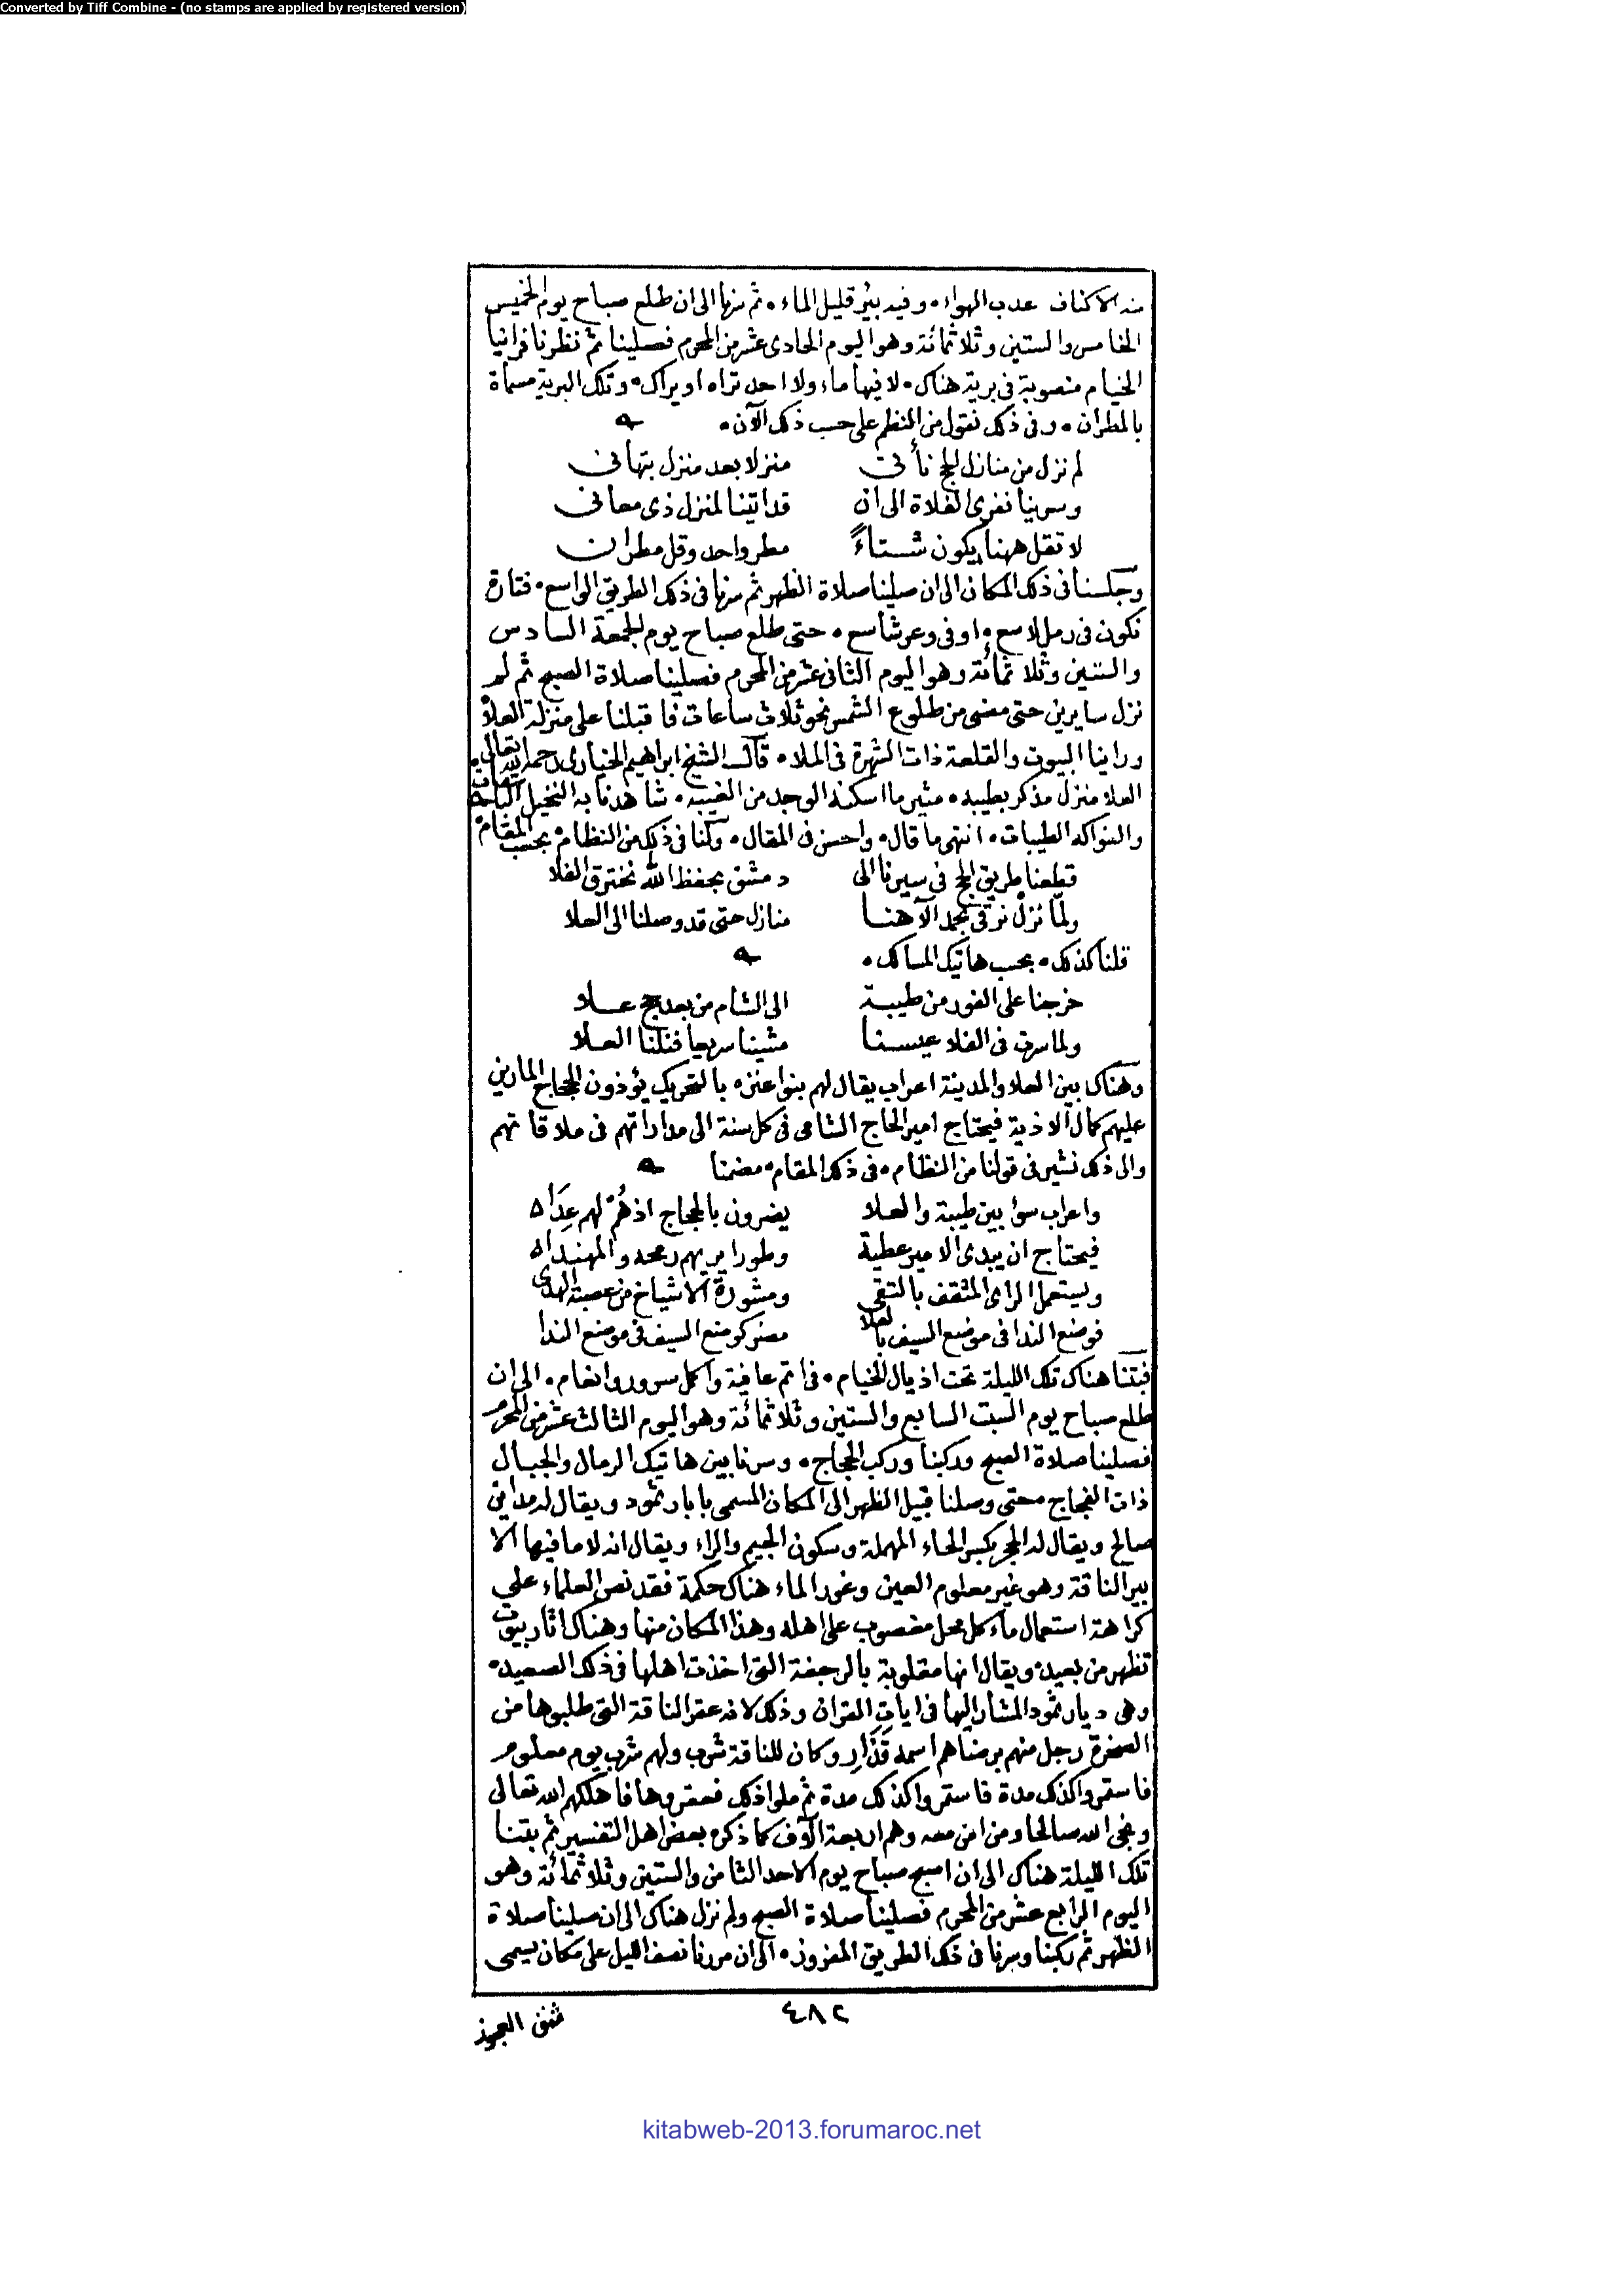 Converted by Tiff Combine - (no stamps are applied by registered version)
منه الاكناف عدب الهواء، وفيه بئر قليل الماء، ثم سرنا الى ان طلع صباح يوم الخميس
الخامس والستين وثلاثمائة وهو اليوم الحادى عشر من المحرم فصلينا ثم نظرنا فراينا
الخيام منصوبة فى برية هناك، لا فيها ماء ولا احد تراه او يراك، وتلك البرية مسماة
بالمطران، وفى ذلك نقول من النظم على حسب ذلك الآن،
لم نزل من منازل الحج نأتى منزلا بعد منزل بتهانى
وسرينا نفرى الفلاة الى ان قد اتينا لمنزل ذى معانى
لا تقل ههنا يكون شتاءً مطر واحد وقل مطران
وجلسنا فى ذلك المكان الى ان صلينا صلاة الظهر ثم سرنا فى ذلك الطريق الواسع، فتارة
نكون فى رمل لامع، او فى وعر شاسع، حتى طلع صباح يوم الجمعة السادس
والستين وثلاثمائة وهو اليوم الثانى عشر من المحرم فصلينا صلاة الصبح ثم لم
نزل سايرين حتى مضى من طلوع الشمس نحو ثلاث ساعات فاقبلنا على منزلة العلا
وراينا البيوت والقلعة ذات الشهرة فى الملا، قال الشيخ ابراهيم الخيارى رحمه الله تعالى
العلا منزل مذكر بطيبه، مثير ما اسكنه الوجد من الغيبه، شاهدنا به النخيل الباسقات
والفواكه الطيبات، انتهى ما قال، واحسن فى المقال، وقلنا فى ذلك من النظام، بحسب المقام
قطعنا طريق الحج فى سيرنا الى دمشق بحفظ الله نخترق الفلا
ولمّا نزل نرقى بحمد الآهنا منازل حتى قد وصلنا الى العلا
قلنا كذلك، بحسب هاتيك المسالك،
خرجنا على الفور من طيبة الى الشام من بعد حج علا
ولما سرت فى الفلا عيسنا مشينا سريعا فنلنا العلا
وهناك بين العلا والمدينة اعراب يقال لهم بنوا عنزه بالتحريك يؤذون الحجاج المارين
عليهم كمال الاذية فيحتاج امير الحاج الشامى فى كل سنة الى مداراتهم فى ملاقاتهم
والى ذلك نشير فى قولنا من النظام، فى ذلك المقام، مضمنا
واعراب سوأ بين طيبة والعلا يضرون بالحجاج اذ هُمْ لهم عِدَا
فيحتاج ان يبدى الامير عطية وطورا يريهم رمحه والمهندا
ويستعمل الراى المثقف بالتقى ومشورة الاشياخ من عصبة الهدى
فوضع الندا فى موضع السيف بالعلا مضر كوضع السيف فى موضع الندا
فبتنا هناك تلك الليلة تحت اذيال الخيام، فى اتم عافية واكل سرور وانعام، الى ان
طلع صباح يوم السبت السابع والستين وثلاثمائة وهو اليوم الثالث عشر من المحرم
فصلينا صلاة الصبح وركبنا وركب الحجاج، وسرنا بين هاتيك الرمال والجبال
ذات الفجاج، حتى وصلنا قبيل الظهر الى المكان المسمى بابار ثمود ويقال له مداين
صالح ويقال له الحجر بكسر الحاء المهملة وسكون الجيم والراء ويقال انه لا ما فيها الا
بير الناقة وهو غير معلوم العين وغور الماء هناك حكمة فقد نص العلماء على
كراهة استعمال ماء كل محل مغصوب على اهله وهذا المكان منها وهناك اثار بيوت
تظهر من بعيد، ويقال انها مقلوبة بالرجفة التى اخذت اهلها فى ذلك الصعيد،
وهى ديار ثمود المشار اليها فى ايات القران وذلك لانه عقر الناقة التى طلبوها من
الصخرة رجل منهم برضاهم اسمه قدار وكان للناقة شرب ولهم شرب يوم معلوم
فاستمروا كذلك مدة فاستمروا كذلك مدة ثم ملوا ذلك فعقروها فاهلكهم الله تعالى
ونجى الله صالحا ومن امن معه وهم اربعة آلاف كما ذكره بعض اهل التفسير ثم بتنا
تلك الليلة هناك الى ان اصبح صباح يوم الاحد الثامن والستين وثلاثمائة وهو
اليوم الرابع عشر من المحرم فصلينا صلاة الصبح ولم نزل هناك الى ان صلينا صلاة
الظهر ثم ركبنا وسرنا فى ذلك الطريق المفروز، الى ان مررنا نصف الليل على مكان يسمى
٤٨٢
شق العجوز
kitabweb-2013.forumaroc.net